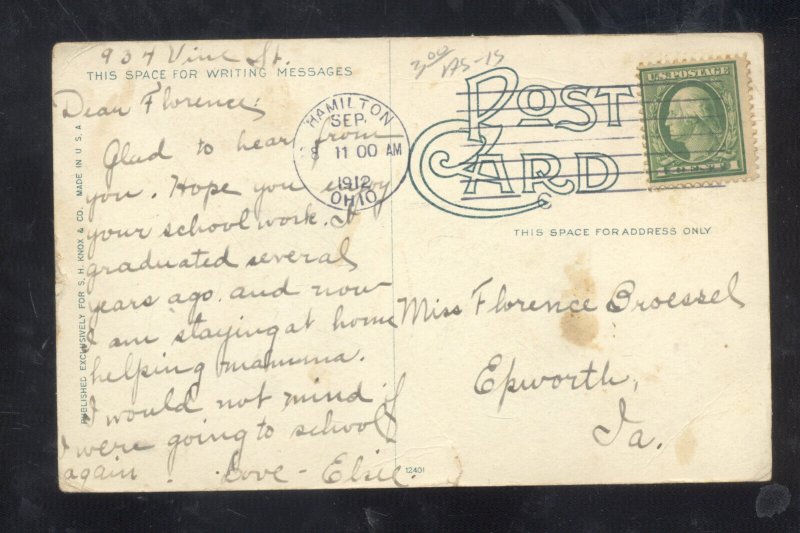 934 Vine St.
THIS SPACE FOR WRITING MESSAGES
Dear Florence;
Glad to hear from
you. Hope you enjoy
your school work. I
graduated several
years ago and now
I am staying at home
helping mamma.
I would not mind if
I were going to school
again. Love - Elsie.
PUBLISHED EXCLUSIVELY FOR S. H. KNOX & CO. MADE IN U. S. A.
HAMILTON
SEP.
8 11 00 AM
1912
OHIO
300
POST
CARD
U.S. POSTAGE
1 CENT 1
THIS SPACE FOR ADDRESS ONLY
Miss Florence Broessel
Epworth,
Ia.
12401